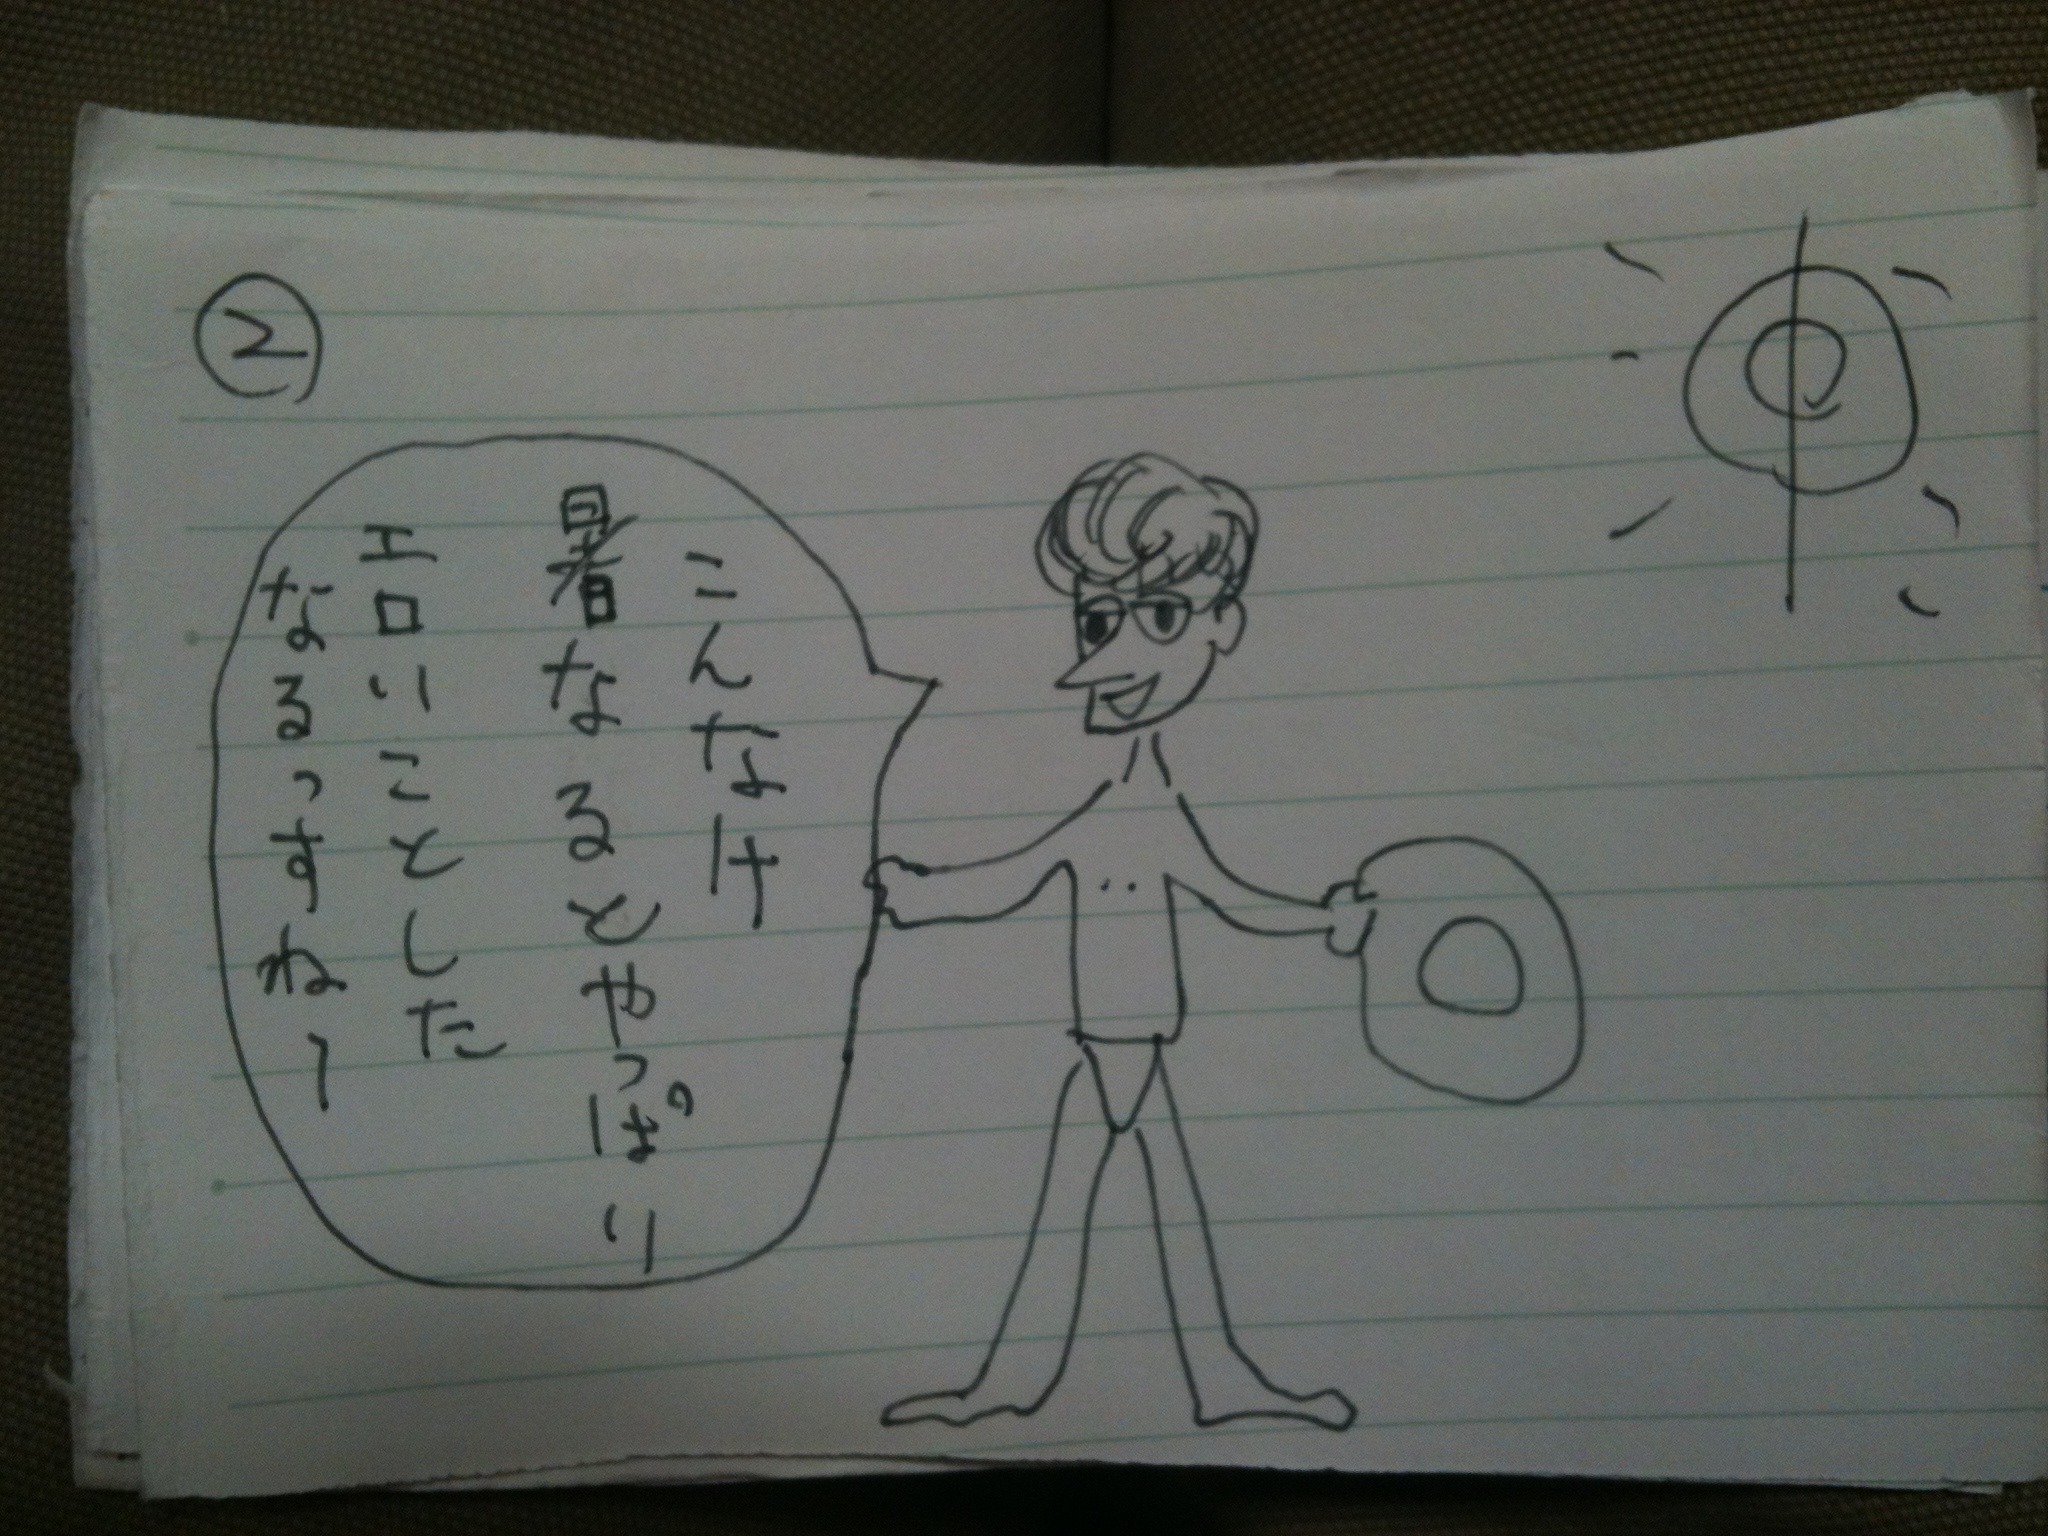 ②
こんなけ
暑なるとやっぱり
エロいことした
なるっすねー